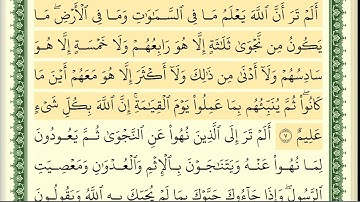 أَلَمْ تَرَ أَنَّ ٱللَّهَ يَعْلَمُ مَا فِى ٱلسَّمَٰوَٰتِ وَمَا فِى ٱلْأَرْضِ ۖ مَا
يَكُونُ مِن نَّجْوَىٰ ثَلَٰثَةٍ إِلَّا هُوَ رَابِعُهُمْ وَلَا خَمْسَةٍ إِلَّا هُوَ
سَادِسُهُمْ وَلَآ أَدْنَىٰ مِن ذَٰلِكَ وَلَآ أَكْثَرَ إِلَّا هُوَ مَعَهُمْ أَيْنَ مَا
كَانُوا۟ ۖ ثُمَّ يُنَبِّئُهُم بِمَا عَمِلُوا۟ يَوْمَ ٱلْقِيَٰمَةِ ۚ إِنَّ ٱللَّهَ بِكُلِّ شَىْءٍ
عَلِيمٌ ٧ أَلَمْ تَرَ إِلَى ٱلَّذِينَ نُهُوا۟ عَنِ ٱلنَّجْوَىٰ ثُمَّ يَعُودُونَ
لِمَا نُهُوا۟ عَنْهُ وَيَتَنَٰجَوْنَ بِٱلْإِثْمِ وَٱلْعُدْوَٰنِ وَمَعْصِيَتِ
ٱلرَّسُولِ وَإِذَا جَآءُوكَ حَيَّوْكَ بِمَا لَمْ يُحَيِّكَ بِهِ ٱللَّهُ وَيَقُولُونَ